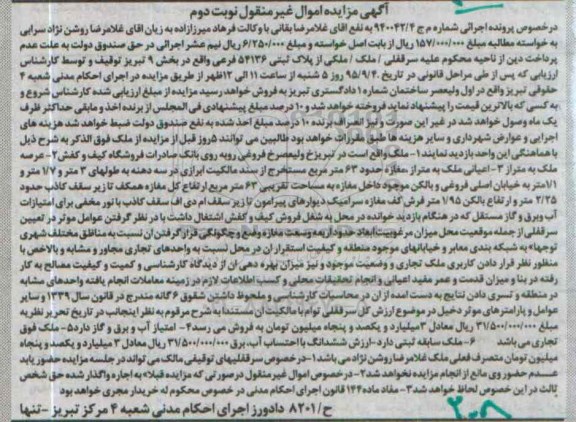 آگهی مزایده اموال غیر منقول نوبت دوم
درخصوص پرونده اجرائی شماره م ج ۹۴۰۰۴۲/۴ به نفع اقای غلامرضا بقائی با وکالت فرهاد میرزازاده به زیان اقای غلامرضا روشن نژاد سرابی
به خواسته مطالبه مبلغ ۱۵۷/۰۰۰/۰۰۰ ریال از بابت اصل خواسته و مبلغ ۶/۲۵۰/۰۰۰ ریال نیم عشر اجرائی در حق صندوق دولت به علت عدم
پرداخت دین از ناحیه محکوم علیه سرقفلی / ملک / ملکی از پلاک ثبتی ۵۴۱۳۶ فرعی واقع در بخش ۹ تبریز توقیف و توسط کارشناس
ارزیابی که پس از طی مراحل قانونی در تاریخ ۹۵/۹/۴ روز ۵ شنبه از ساعت ۱۱ الی ۱۲ ظهر از طریق مزایده در اجرای احکام مدنی شعبه ۴
حقوقی تبریز واقع در اول ولیعصر ساختمان شماره ۱ دادگستری تبریز به فروش خواهد رسید مزایده از مبلغ ارزیابی شده کارشناس شروع و
به کسی که بالاترین قیمت را پیشنهاد نماید فروخته خواهد شد و ۱۰ درصد مبلغ پیشنهادی فی المجلس از برنده اخذ و مابقی حداکثر ظرف
یک ماه وصول خواهد شد در غیر این صورت و نیز انصراف برنده ۱۰ درصد مبلغ اخذ شده به نفع صندوق دولت ضبط خواهد شد هزینه های
اجرایی و عوارض شهرداری و سایر هزینه ها طبق مقررات خواهد بود طالبین می توانند ۵ روز قبل از مزایده از ملک فوق الذکر به شرح ذیل
با هماهنگی این واحد بازدید نمایند ۱- ملک واقع است در تبریز خ ولیعصر خ فروغی روبه روی بانک صادرات فروشگاه کیف و کفش ۲- عرصه
ملک به متراژ ۳- اعیانی ملک به متراژ مغازه حدود ۶۳ متر مربع مستخرج از سند مالکیت ابرازی در سه دهنه به طولهای ۳ متر و ۱/۷ متر و
۱/۱ متر به خیابان اصلی فروغی و بالکن موجود داخل مغازه به مساحت تقریبی ۶۳ متر مربع ارتفاع کل مغازه همکف تا زیر سقف کاذب حدود
۲/۲۵ متر و ارتفاع بالکن ۱/۹۵ متر فرش کف مغازه سرامیک دیوارهای پیرامون تا زیر سقف ام دی اف سقف کاذب با نور مخفی برای امتیازات
آب و برق و گاز مستقل که در هنگام بازدید خوانده در محل به شغل فروش کیف و کفش اشتغال داشت با در نظر گرفتن عوامل موثر در تعیین
سرقفلی از جمله موقعیت محل میزان مرغوبیت ابعاد حدود از به وسعت مغازه وضع و چگونگی قرار گرفتن ان نسبت به مناطق مختلف شهری
توجها به شبکه بندی معابر و خیابانهای موجود منطقه و کیفیت استقرار ان در محل نسبت به واحدهای تجاری مجاور و مشابه و بالاخص با
منظور نظر قرار دادن کاربری ملک تجاری و وضعیت موجود و نیز میزان بهره دهی ان از دیدگاه کارشناسی و کمیت و کیفیت مصالح به کار
رفته در بنا و میزان قدمت و عمر مفید اعیانی و انجام تحقیقات محلی و کسب اطلاعات لازم در زمینه معاملات انجام یافته واحدهای مشابه
در منطقه و تسری دادن نتایج به دست امده از ان در محاسبات کارشناسی و ملحوظ داشتن شقوق ۶ گانه مندرج در قانون سال ۱۳۳۹ و سایر
عوامل و پارامترهای موثر دخیل در موضوع ارزش کل سرقفلی توام با مالکیت ان مستندا به شرح مرقوم به نظر اینجانب در تاریخ تحریر نظریه
مبلغ ۳۱/۵۰۰/۰۰۰/۰۰۰ ریال معادل ۳ میلیارد و یکصد و پنجاه میلیون تومان به فروش می رسد ۴- امتیاز آب و برق و گاز دارد ۵- ملک فوق
تجاری می باشد ۶- ملک سابقه ثبتی دارد -ارزش ششدانگ با احتساب آب، برق ۳۱/۵۰۰/۰۰۰/۰۰۰ ریال معادل ۳ میلیارد و یکصد و پنجاه
میلیون تومان متصرف فعلی ملک غلامرضا روشن نژاد می باشد ۱- درخصوص سرقفلیهای توقیفی مالک می تواند در جلسه مزایده حضور یابد
عدم حضور وی مانع از انجام مزایده نخواهد شد ۲- درخصوص اموال غیر منقول در صورتی که مزایده قبلا» به اجاره واگذار شده حق شخص
ثالث در این خصوص لحاظ خواهد شد ۳- مفاد ماده ۱۴۴ قانون اجرای احکام مدنی در خصوص محکوم له خریدار مجری خواهد بود
ح/۸۲۰۱ دادورز اجرای احکام مدنی شعبه ۴ مرکز تبریز - تنها